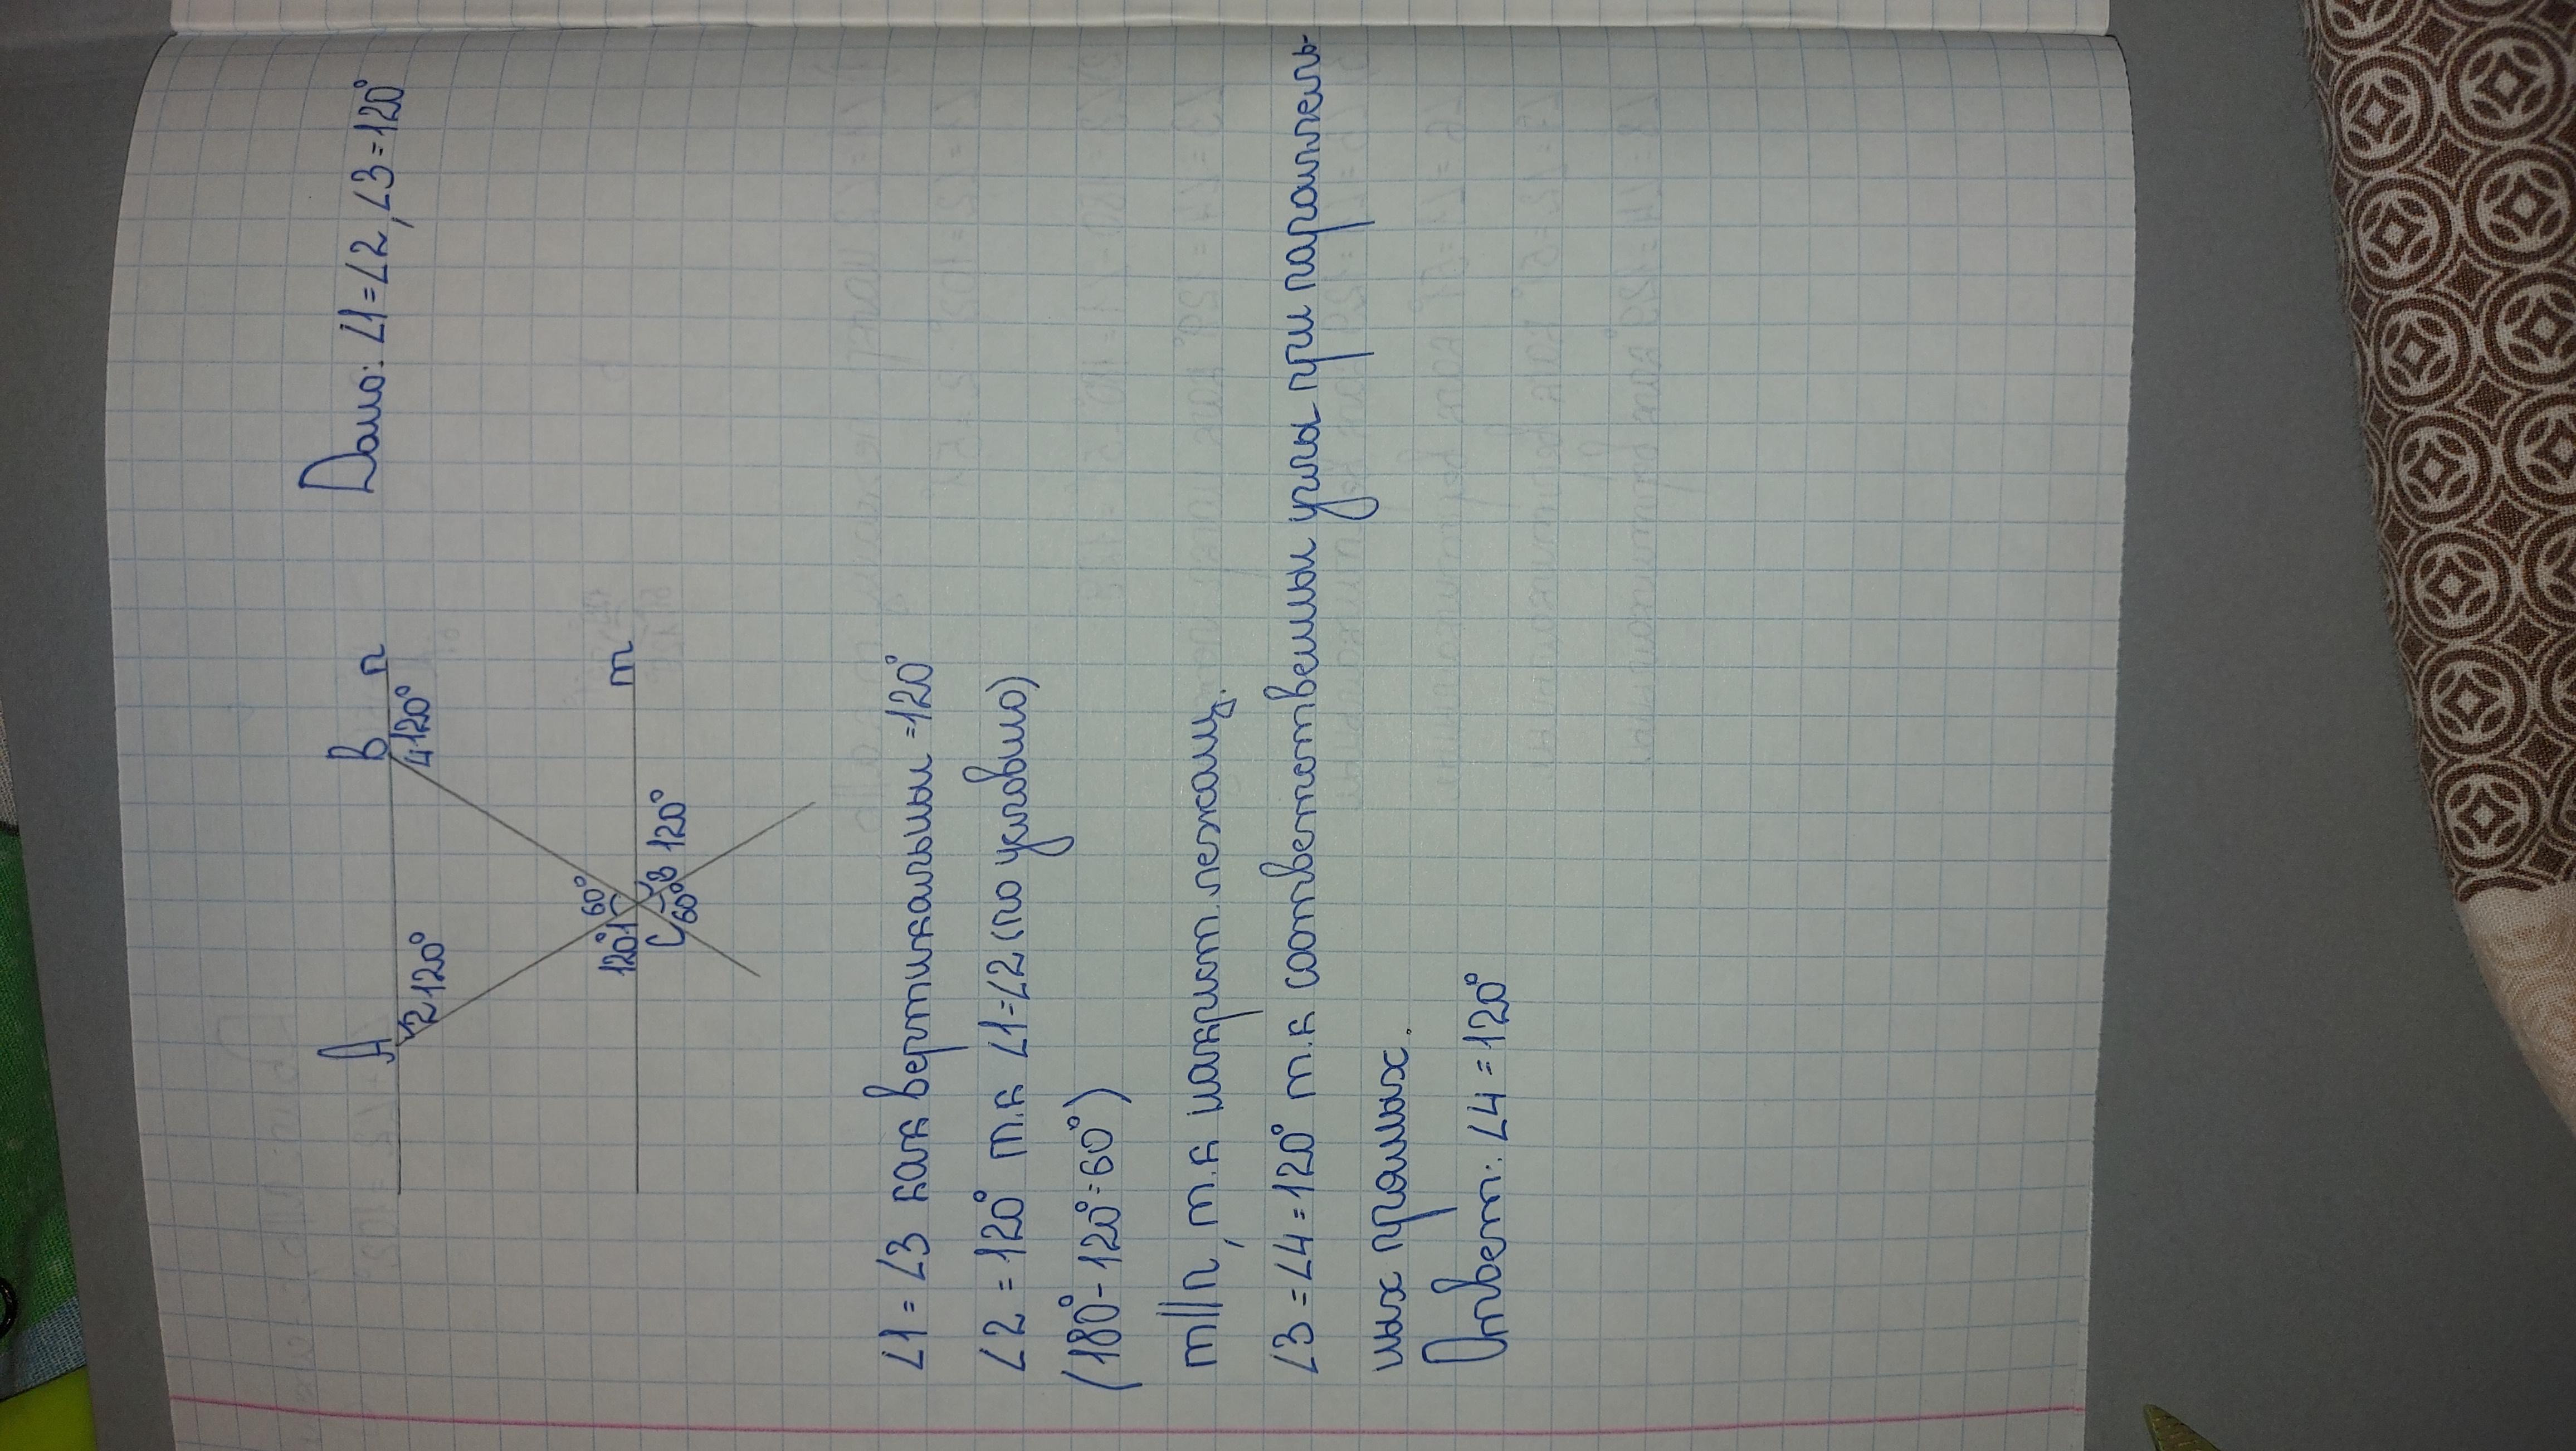 Дано: ∠1=∠2, ∠3=120°
A
B
n
2 120°
4 120°
60°
120° 1
m
C
60°
3 120°
∠1 = ∠3 как вертикальные =120°
∠2 = 120° т.к ∠1=∠2 (по условию)
(180°-120°=60°)
m||n, т.к накрест. лежащ.
∠3=∠4=120° т.к соответственные углы при параллель-
ных прямых.
Ответ: ∠4=120°